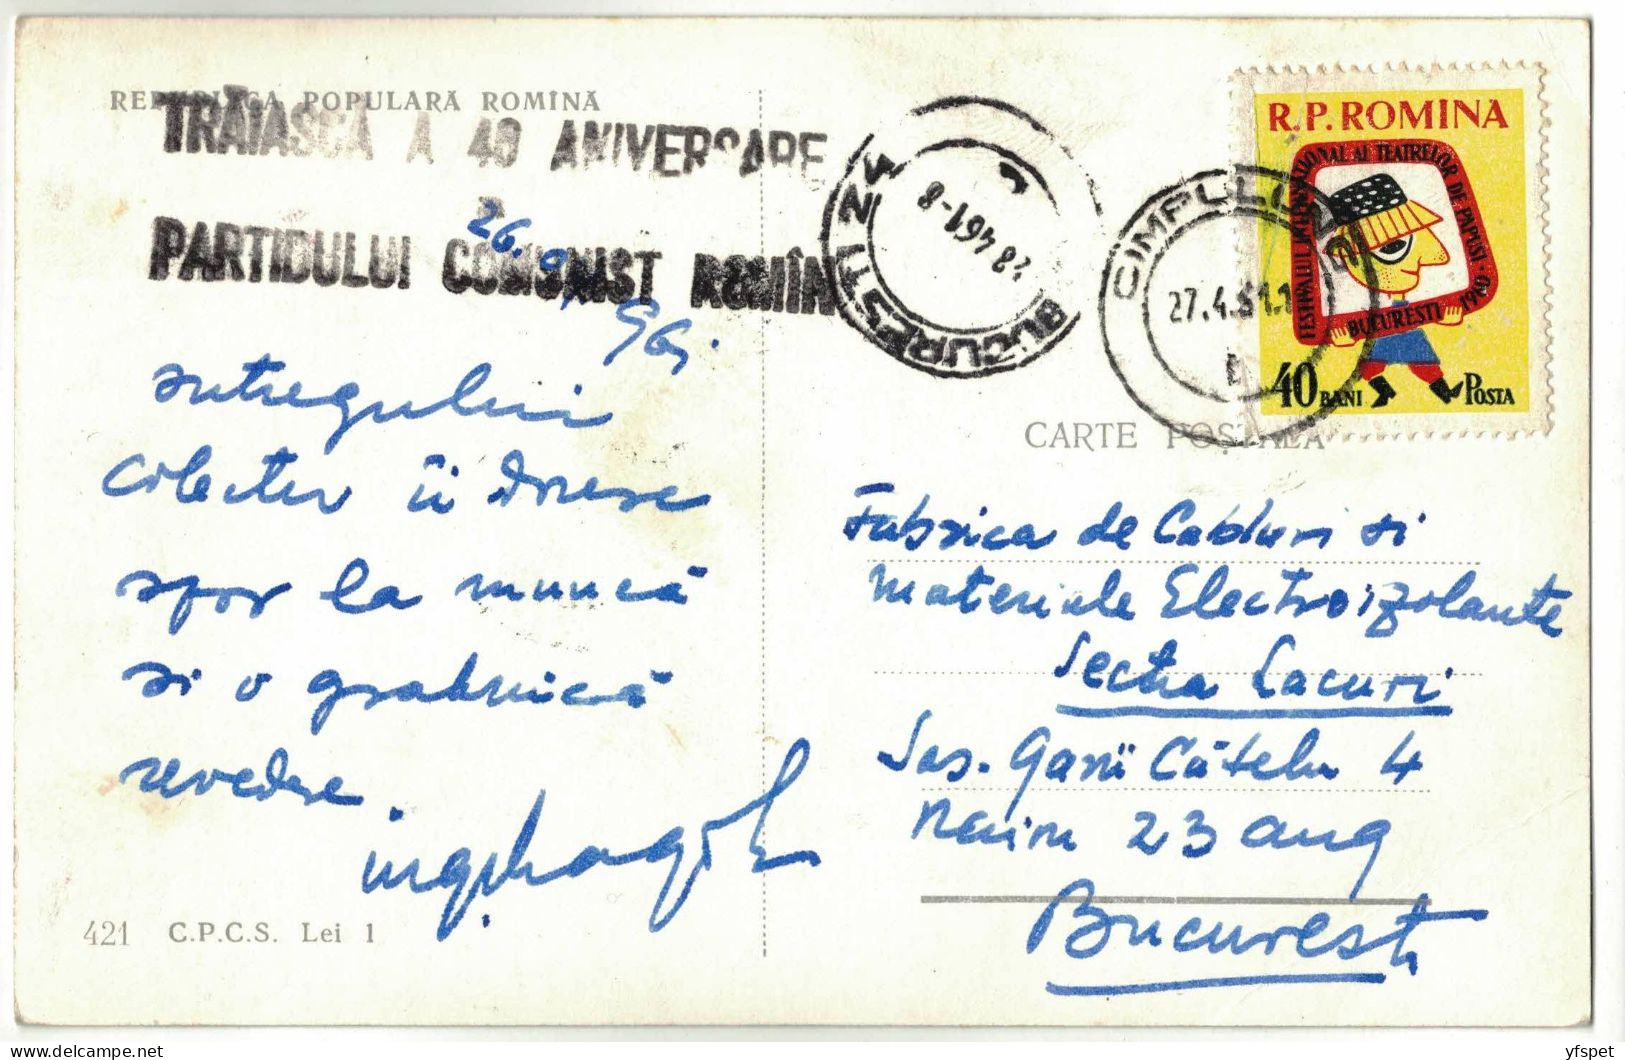 REPUBLICA POPULARĂ ROMÎNĂ
TRĂIASCĂ A 40 ANIVERSARE
PARTIDULUI COMUNIST ROMÎN
26.
961.
Intregului
colectiv îi doresc
spor la muncă
si o grabnică
revedere.
421 C.P.C.S. Lei 1
BUCURESTI 24
28 4 61-8
CIMPULUNG
27.4.61.1
R.P.ROMINA
FESTIVALUL INTERNAȚIONAL AL TEATRELOR DE PĂPUȘI • BUCUREȘTI 1960
40 BANI POSTA
CARTE POȘTALĂ
Fabrica de Cabluri si
Materiale Electroizolante
Sectia Lacuri
Sos. Garii Cătelu 4
Raion 23 aug
Bucuresti
yfspet